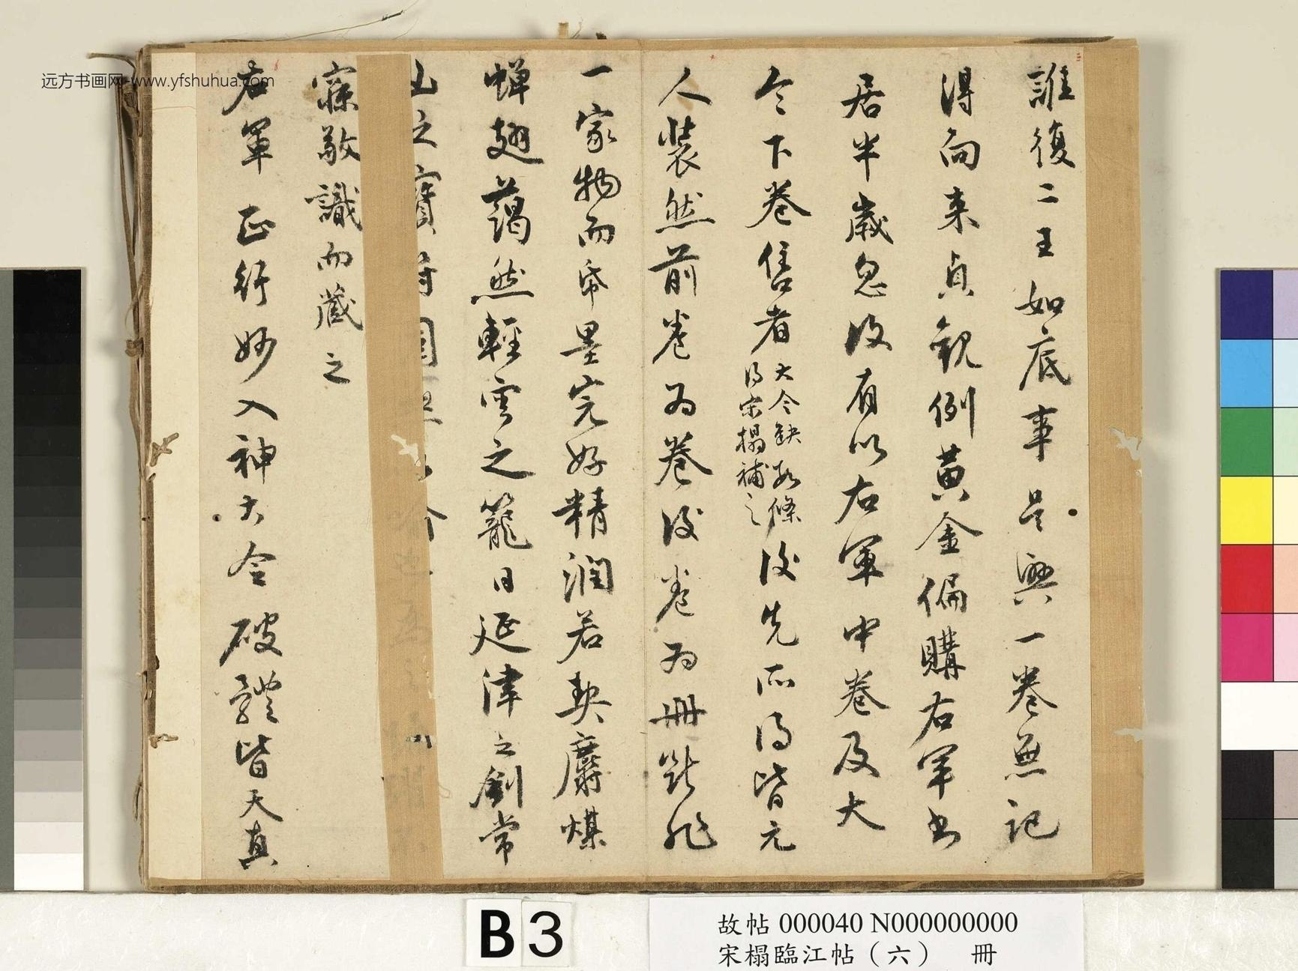 誰復二王如底事是興一卷無記
得向來貞觀例黃金偏購右軍書
居半歲忽復有以右軍中卷及大
令下卷售者
大令缺數條
得宋搨補之
後先所得皆元
人裝然前卷為卷後卷為冊斷非
一家物而紙墨完好精潤若契麝煤
蟬翅藹然輕雲之籠日延津之劍常
山之寶符
寐敬識而藏之
右軍正行妙入神大令破體皆天真
远方书画网-www.yfshuhua.com
B3
故帖 000040 N000000000
宋榻臨江帖（六） 冊